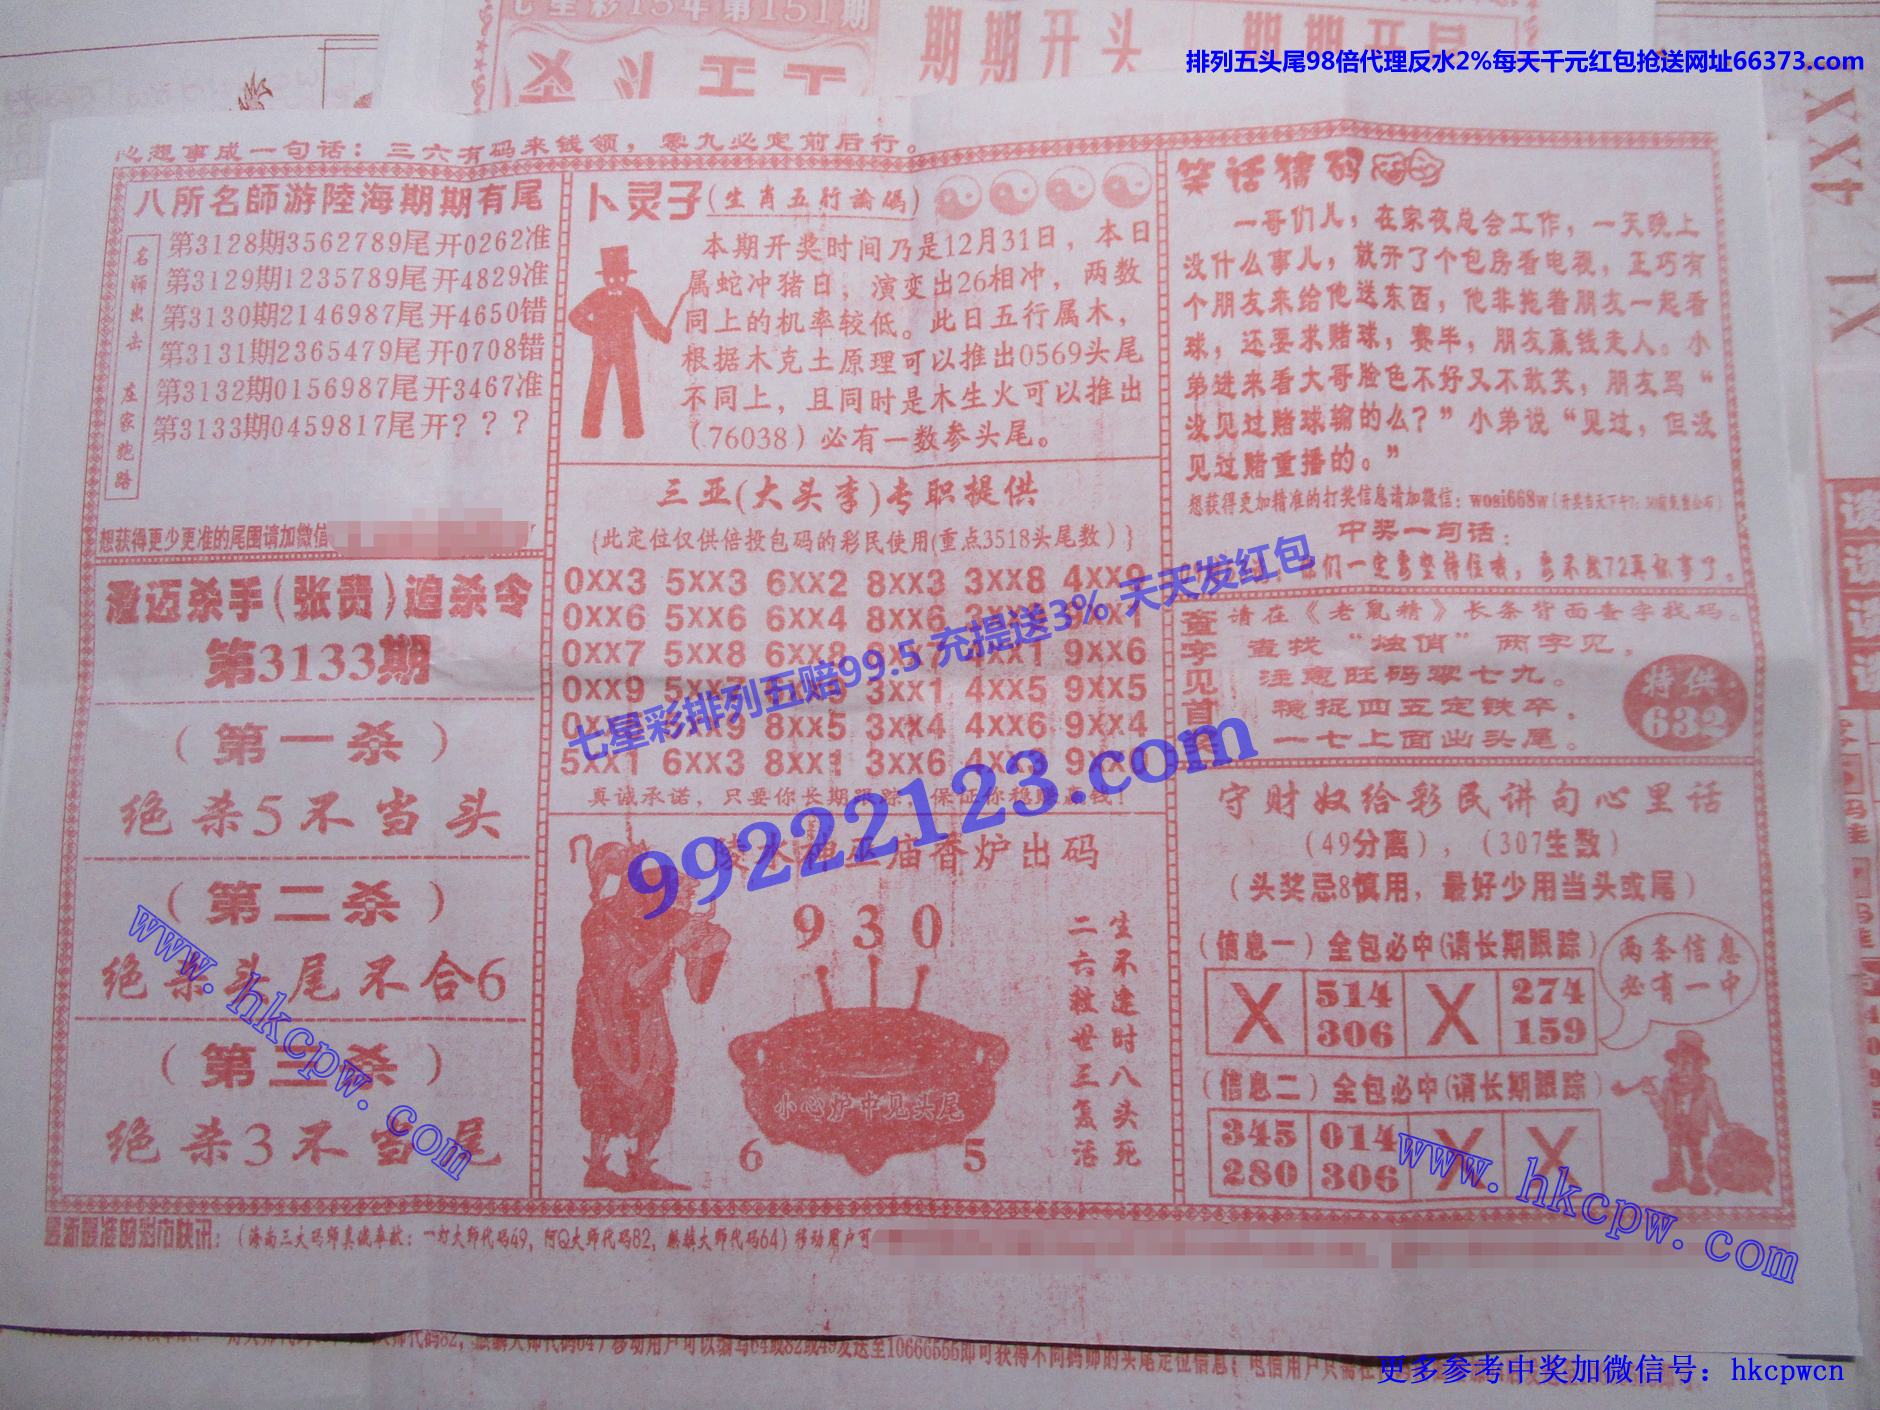 七星彩15年第151期
期期开头
排列五头尾98倍代理反水2%每天千元红包抢送网址66373.com
心想事成一句话：三六有码来钱领，零九必定前后行。
八所名師游陸海期期有尾
名师出击 在家跑路
第3128期3562789尾开0262准
第3129期1235789尾开4829准
第3130期2146987尾开4650错
第3131期2365479尾开0708错
第3132期0156987尾开3467准
第3133期0459817尾开？？？
想获得更少更准的尾围请加微信
澄迈杀手(张贵)追杀令
第3133期
（第一杀）
绝杀5不当头
（第二杀）
绝杀头尾不合6
（第三杀）
绝杀3不当尾
卜灵子(生肖五行論碼)
本期开奖时间乃是12月31日，本日
属蛇冲猪日，演变出26相冲，两数
同上的机率较低。此日五行属木，
根据木克土原理可以推出0569头尾
不同上，且同时是木生火可以推出
（.76038）必有一数参头尾。
三亚(大头李)专职提供
{此定位仅供倍投包码的彩民使用(重点3518头尾数)}
0XX3 5XX3 6XX2 8XX3 3XX8 4XX9
0XX6 5XX6 6XX4 8XX6
0XX7 5XX8 6XX8 9XX6
0XX9 3XX1 4XX5 9XX5
8XX5 3XX4 4XX6 9XX4
5XX1 6XX3 8XX1 3XX6 4XX3
真诚承诺，只要你长期跟踪，保证你稳赚赢钱！
七星彩排列五赔99.5 充提送3% 天天发红包
99222123.com
庙香炉出码
930
小心炉中见头尾
6 5
生不逢时八头死
二六救世三复活
笑话猜码
一哥们儿，在家夜总会工作，一天晚上
没什么事儿，就开了个包房看电视，正巧有
个朋友来给他送东西，他非拖着朋友一起看
球，还要求赌球，赛毕，朋友赢钱走人。小
弟进来看大哥脸色不好又不敢笑，朋友骂“
没见过赌球输的么？”小弟说“见过，但没
见过赌重播的。”
想获得更加精准的打奖信息请加微信：wosi668w
中奖一句话：
查字见首尾
请在《老鼠精》长条背面查字找码。
查找“烛俏”两字见，
注意旺码零七九。
稳捉四五定铁卒，
一七上面出头尾。
特供
632
守财奴给彩民讲句心里话
（49分离），（307生数）
（头奖忌8慎用，最好少用当头或尾）
（信息一）全包必中(请长期跟踪)
X 514 306 X 274 159
两条信息
必有一中
（信息二）全包必中(请长期跟踪)
345 280 014 306 X X
www.hkcpw.com
www.hkcpw.com
最新最准的彩市快讯：（海南三大码师真诚奉献：一灯大师代码49，阿Q大师代码82，麒麟大师代码64）移动用户可
更多参考中奖加微信号：hkcpwcn